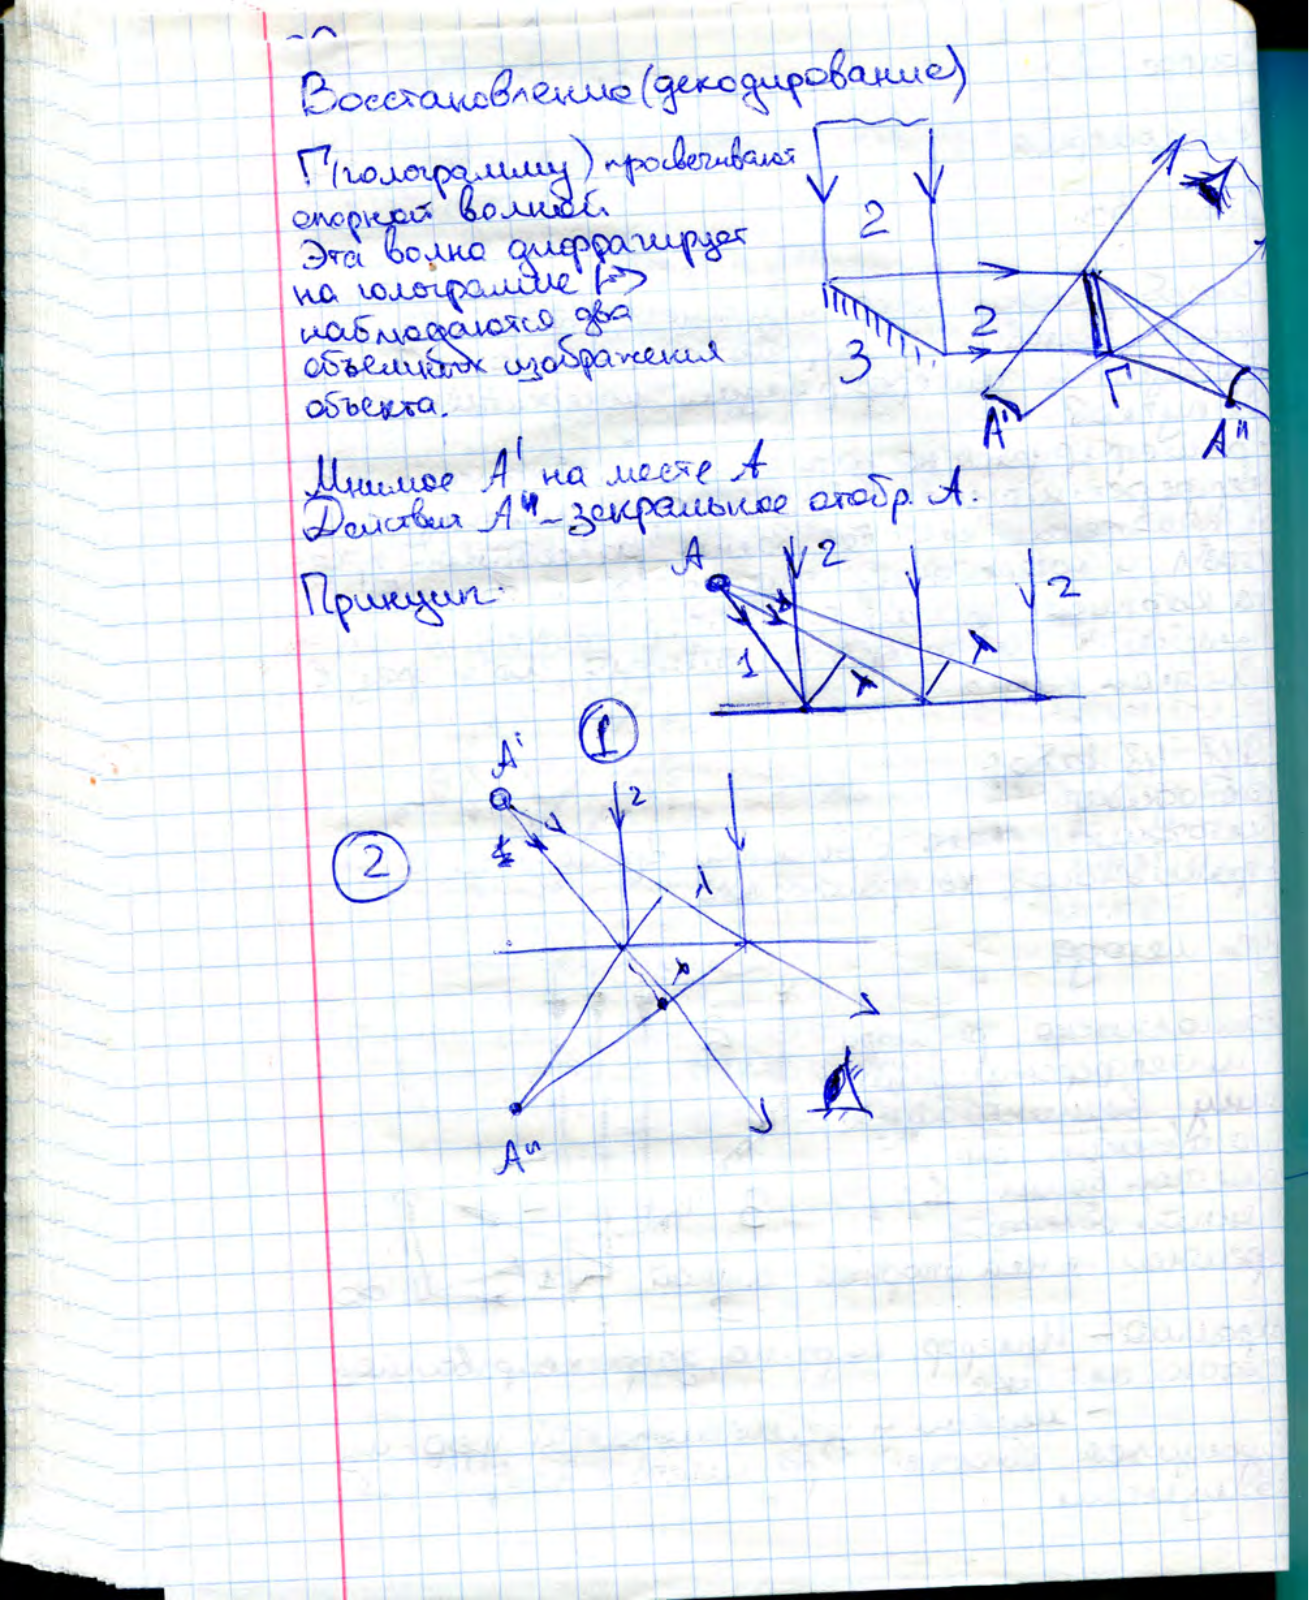 Восстановление (декодирование)
Г(голограмму) просвечивают
опорной волной.
Эта волна дифрагирует
на голограмме =>
наблюдаются два
объемных изображения
объекта.
2
2
3
Г
A'
A"
Мнимое A' на месте A
Действит A" - зекральное отобр. A.
Принцип.
A
2
2
1
λ
λ
1
A'
2
2
1
λ
λ
A"